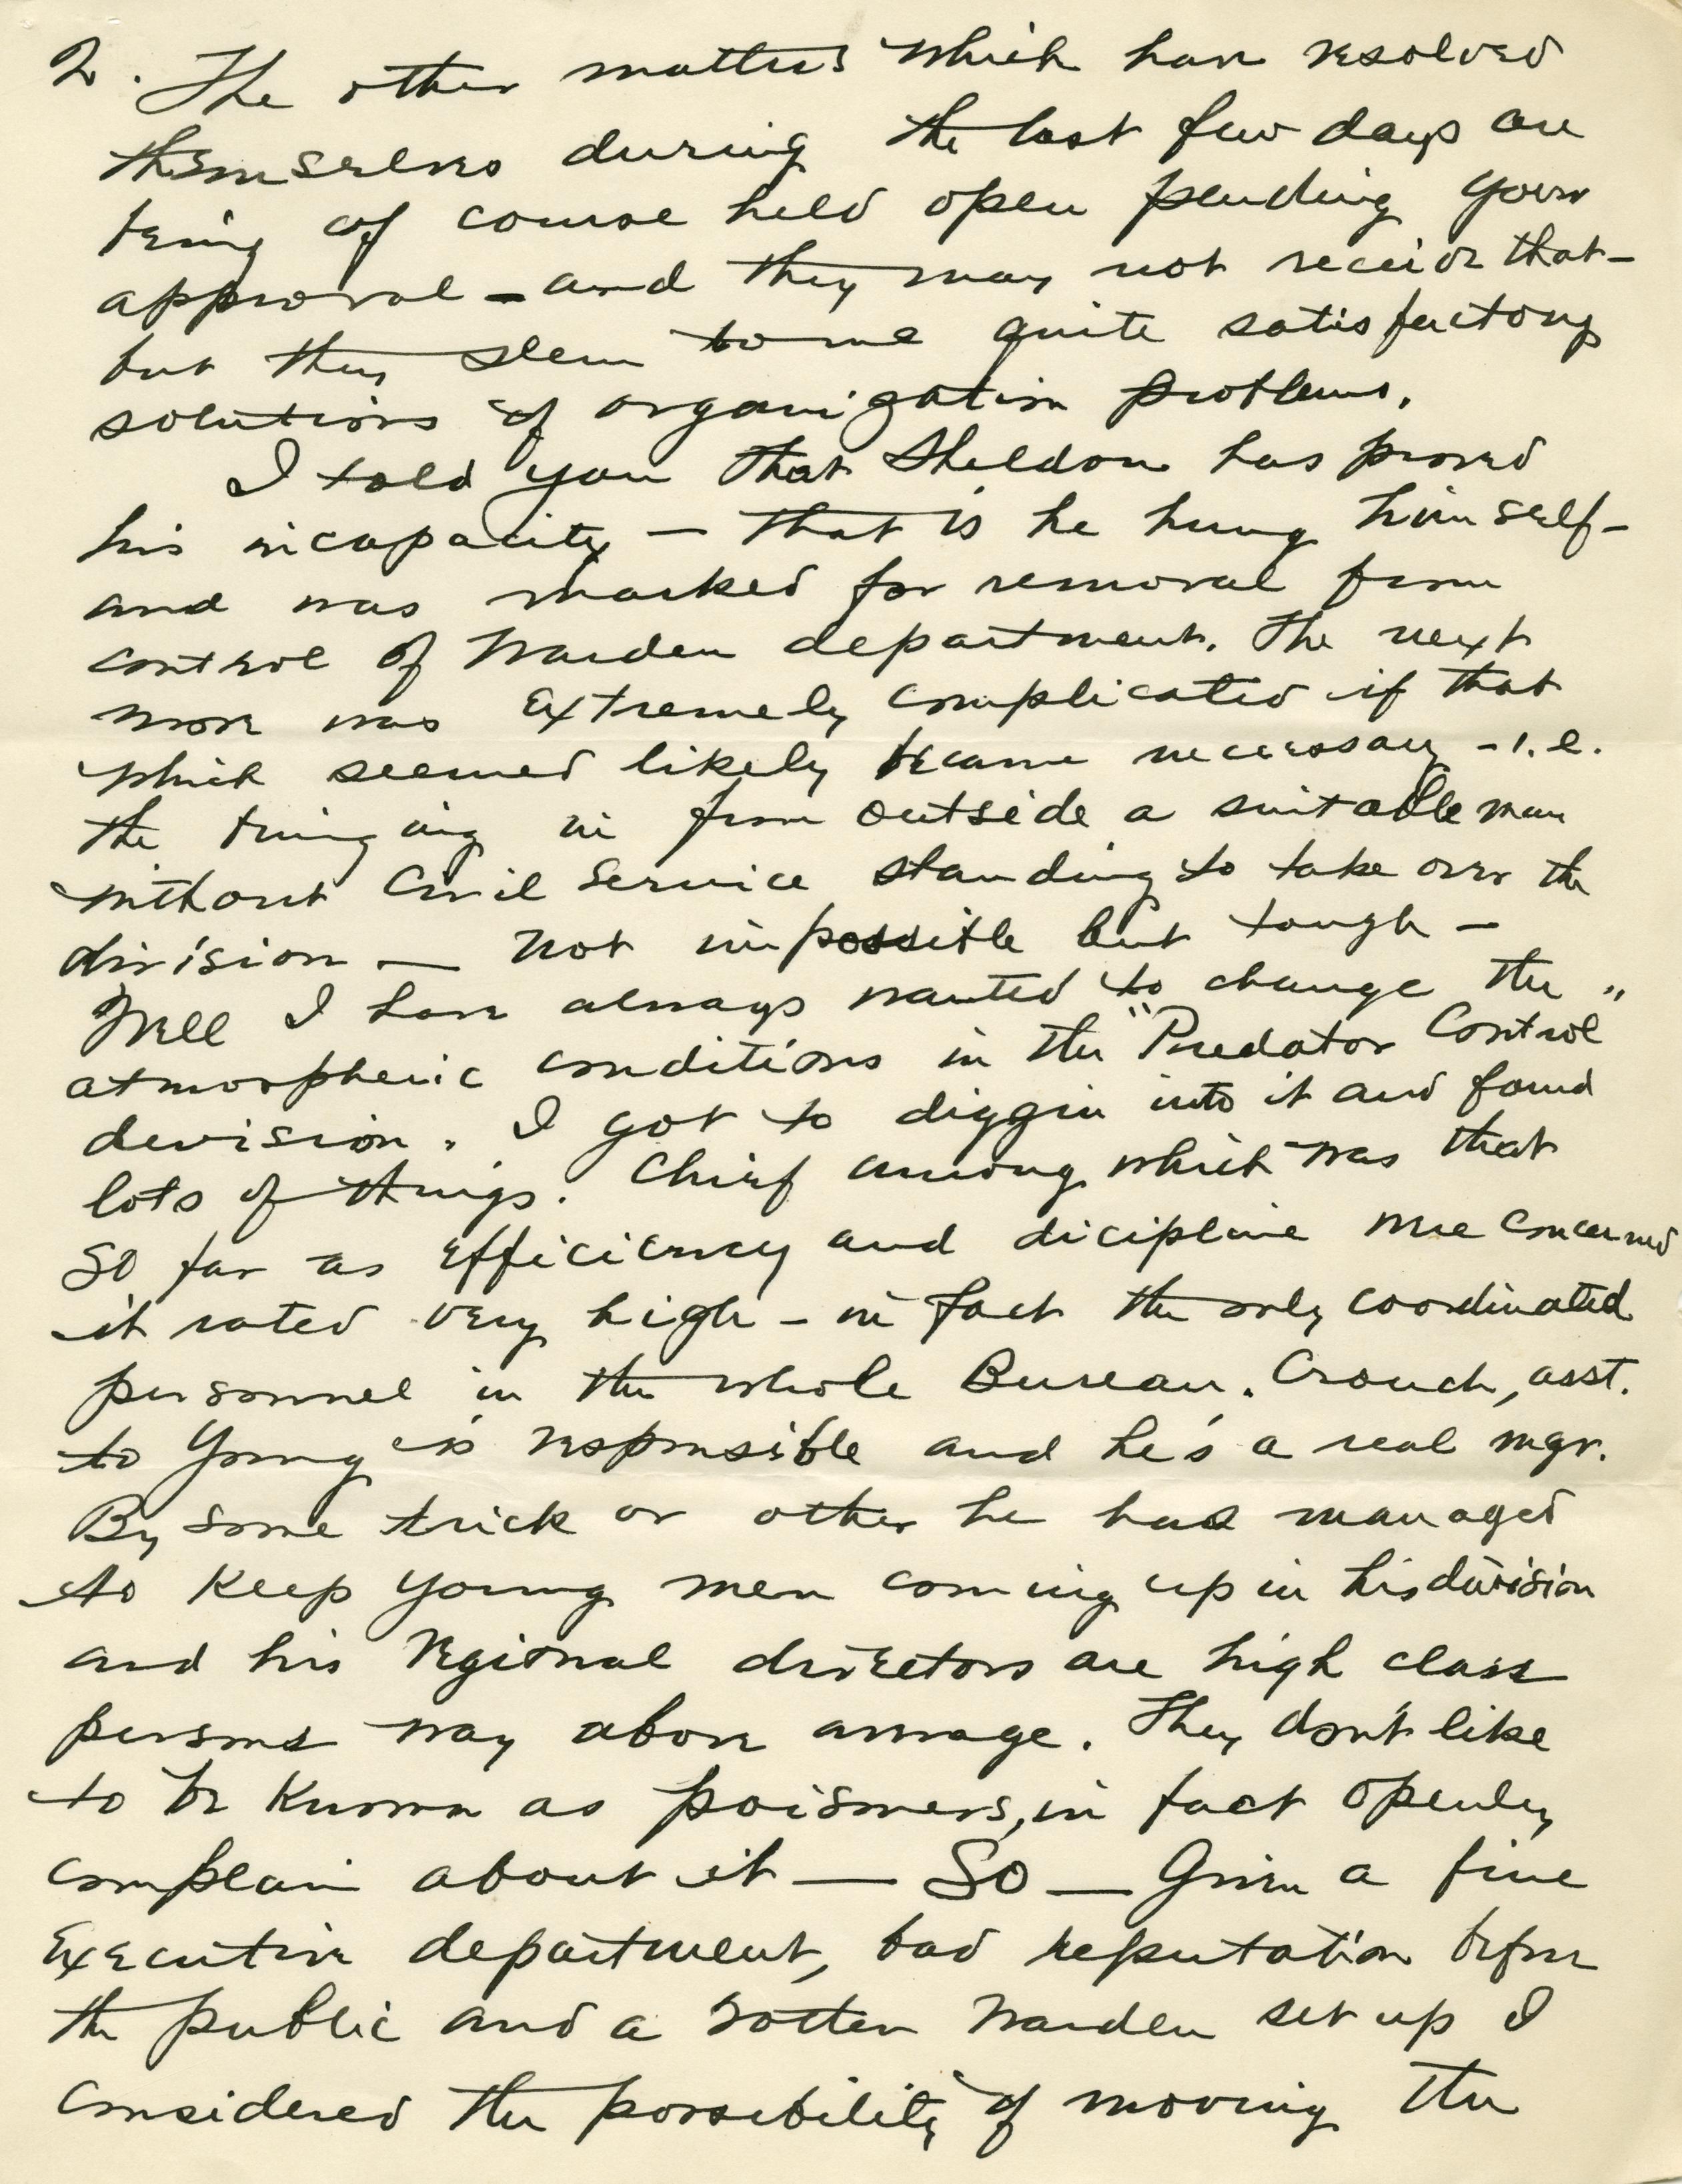 2. The other matters which have resolved
themselves during the last few days are
being of course held open pending your
approval – and they may not receive that –
but they seem to me quite satisfactory
solutions of organization problems.
I told you that Sheldon has proved
his incapacity – that is he hung himself –
and was marked for removal from
control of Warden department. The next
move was extremely complicated if that
which seemed likely became necessary – i.e.
the bringing in from outside a suitable man
without Civil Service standing to take over the
division — not impossible but tough –
Well I have always wanted to change the
atmospheric conditions in the "Predator Control"
devision. I got to diggin into it and found
lots of things. Chief among which was that
so far as efficiency and dicipline were concerned
it rated very high – in fact the only coordinated
personnel in the whole Bureau. Crouch, asst.
to Young is responsible and he's a real mgr.
By some trick or other he has managed
to keep young men coming up in his division
and his regional directors are high class
persons way above average. They don't like
to be known as poisoners, in fact openly
complain about it — So — Given a fine
executive department, bad reputation before
the public and a rotten Warden set up I
considered the possibility of moving the